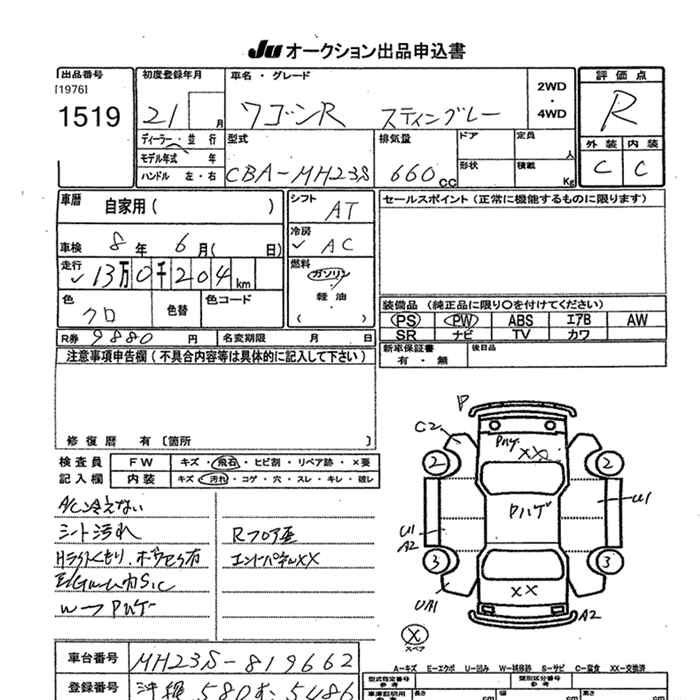 Ju オークション出品申込書
出品番号 初度登録年月 車名・グレード 2WD・4WD 評価点
[1976]
1519 21 月 ワゴンR スティングレー R
ディーラー・並行 型式 排気量 ドア 定員 人 外装 内装
モデル年式 年
ハンドル 左・右 CBA-MH23S 660 cc 形状 積載 Kg C C
車歴 自家用( ) シフト AT セールスポイント(正常に機能するものに限ります)
車検 8年 6月( 日) 冷房 AC
走行 13万0千204 km 燃料 ガソリン
軽油
( )
色 クロ 色替 色コード 装備品(純正品に限り○を付けてください)
PS PW ABS エアB AW
R券 9880 円 名変期限 月 日 SR ナビ TV カワ
注意事項申告欄(不具合内容等は具体的に記入して下さい) 新車保証書 有・無 後日品
修復歴 有〔箇所 〕
検査員 FW キズ・飛石・ヒビ割・リペア跡・×要
記入欄 内装 キズ・汚れ・コゲ・穴・スレ・キレ・破レ
A/C冷えない
シート汚れ Rフロア歪
エンドパネルXX
W→Pハゲ
P
C2 Pハゲ XX
2 2
Pハゲ
U1 A2 U1
3 3
UA1 XX A2
X
スペア
A-キズ E-エクボ U-凹み W-補修跡 S-サビ C-腐食 XX-交換済
車台番号 MH23S-819662 型式指定番号 類別区分番号
参考
登録番号 沖縄 580 5486 車庫証明用 長さ cm 幅 cm 高さ cm
参考